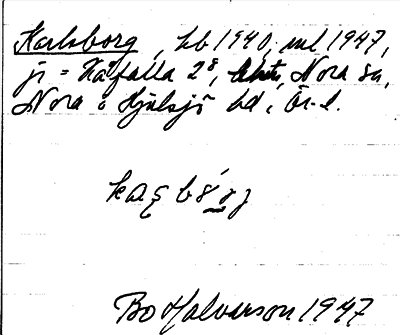 Karlsborg, hb 1940, ml 1947,
jr = Håfalla 2⁸, Nora sn,
Nora o Hjulsjö bd, Ör. l.
Bo Halvarson 1947